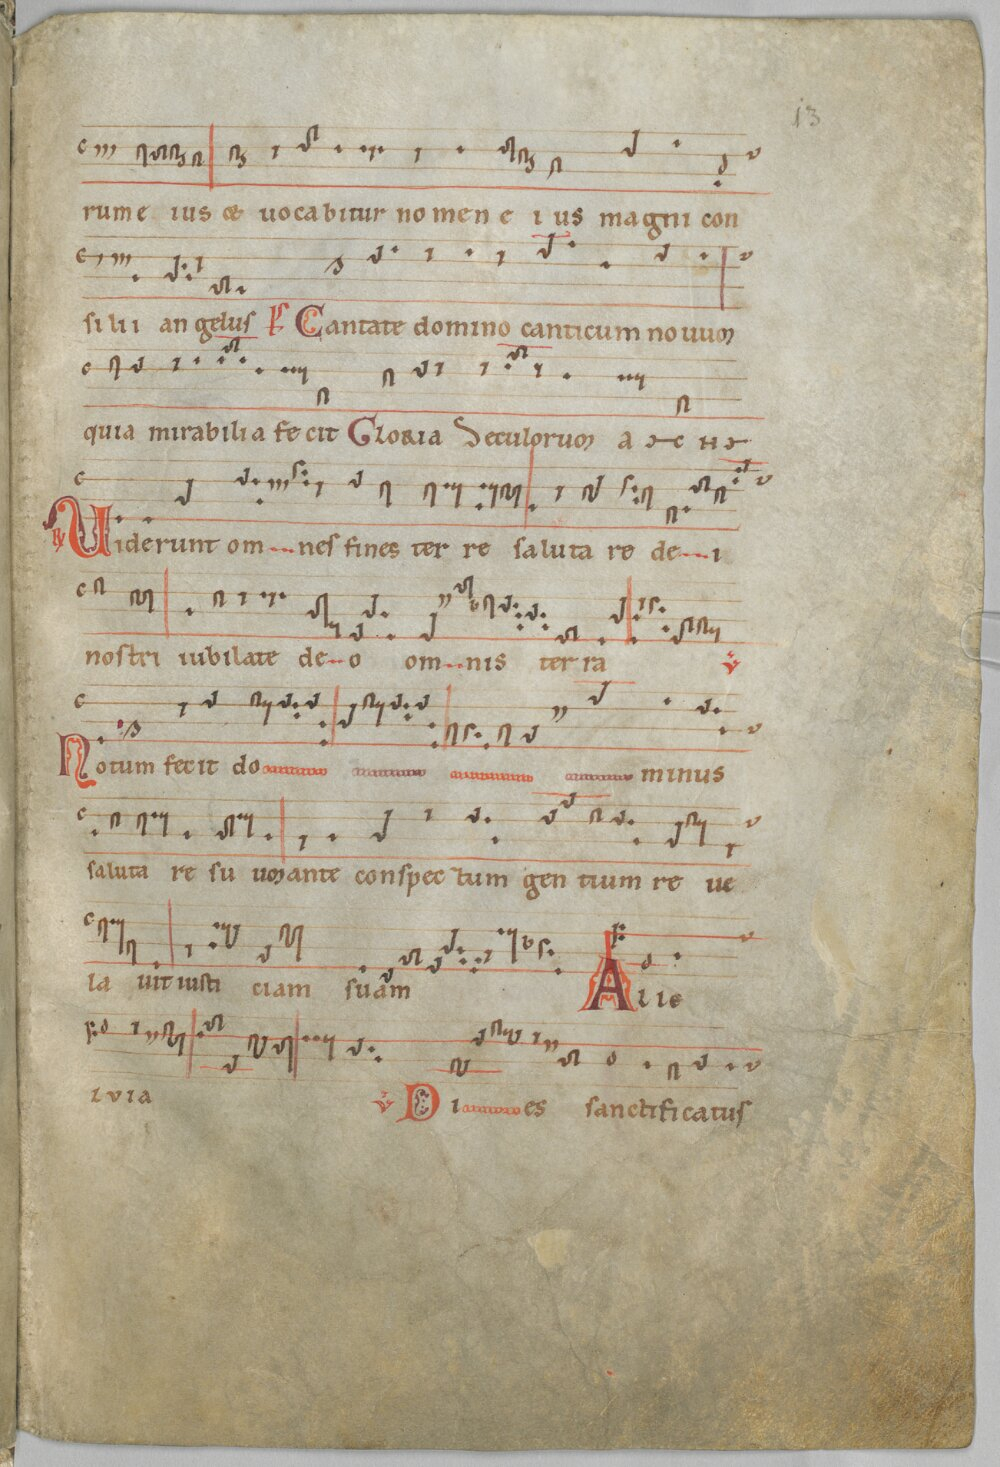 13
rum e ius & uocabitur nomen e ius magni con
silii angelus Ps Cantate domino canticum no uum
quia mirabilia fecit Gloria Seculorum a
Uiderunt om nes fines ter re saluta re de i
nostri iubilate de o om nis terra V
Notum fecit do minus
saluta re su um ante conspec tum gen tium re ue
la uit iusti ciam suam Alle
luia V Di es sanctificatus